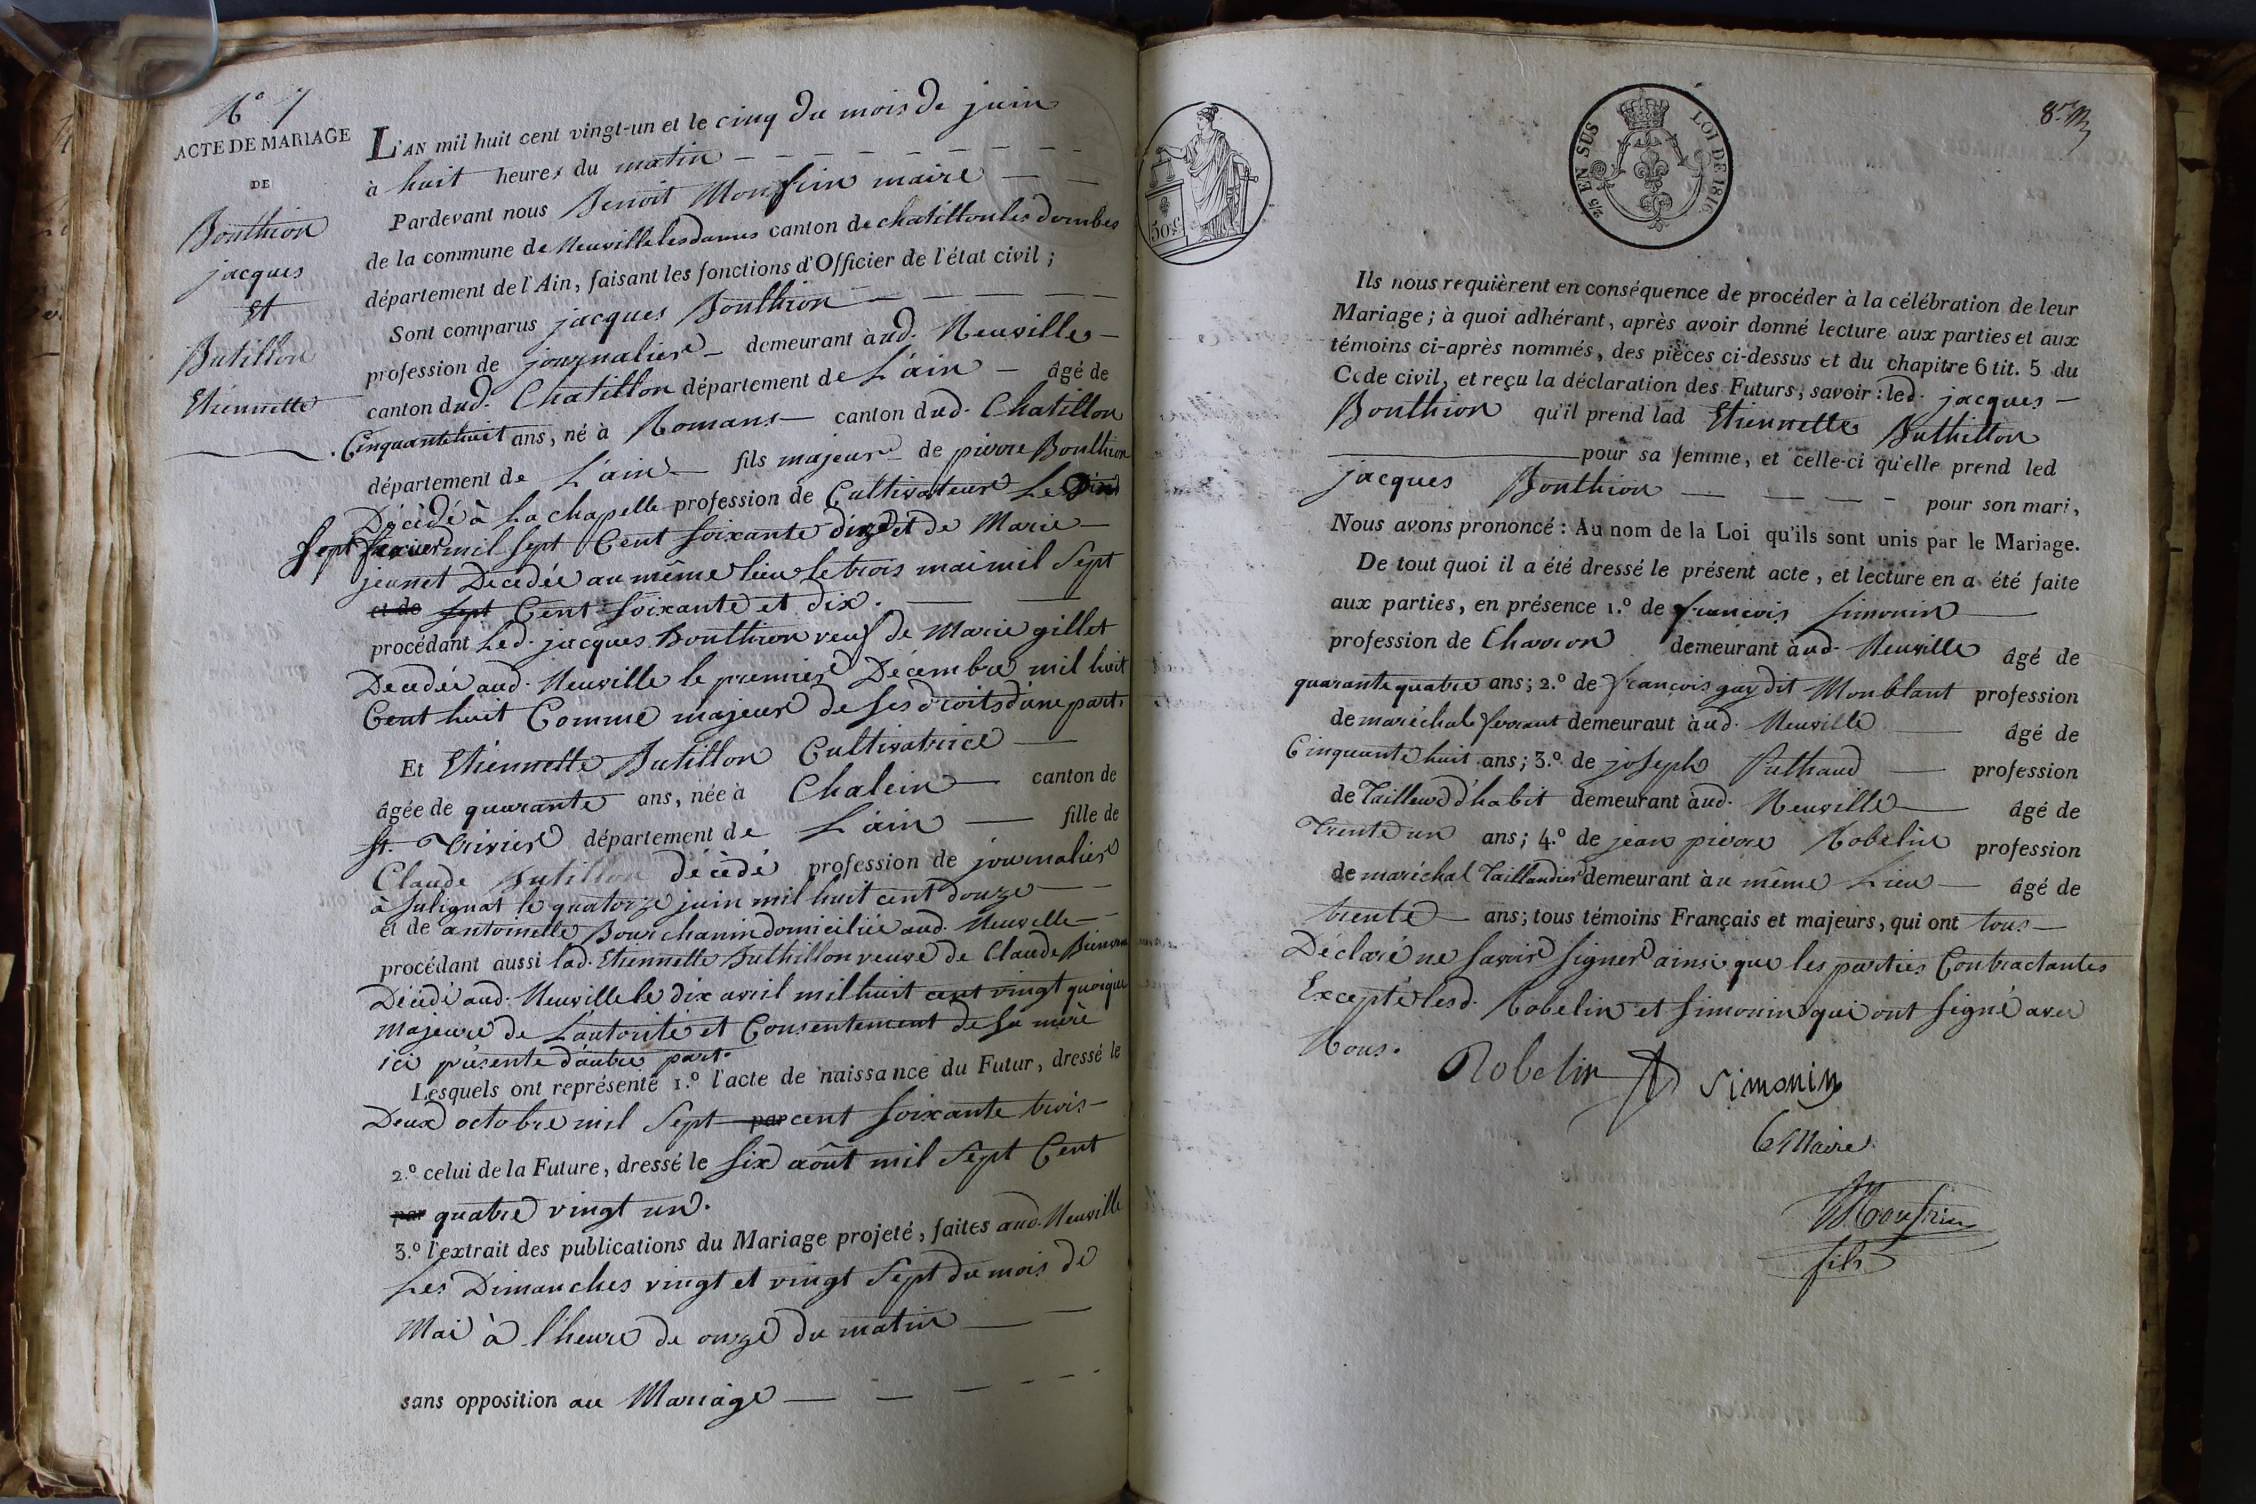 N.° 7
ACTE DE MARIAGE
DE
Bouthion
jacques
Et
Butillon
Etiennette
L'AN mil huit cent vingt-un et le cinq du mois de juin
à huit heures du matin
Pardevant nous Benoit Monfrin maire
de la commune de Neuville les dames canton de chatillon les dombes
département de l'Ain, faisant les fonctions d'Officier de l'état civil ;
Sont comparus jacques Bouthion
profession de journalier demeurant aud. Neuville
canton dud. Chatillon département de L'ain âgé de
Cinquante huit ans, né à Romans canton dud. Chatillon
département de L'ain fils majeur de pierre Bouthion
Décédé à La chapelle profession de Cultivateur Le
Sept mil Sept Cent Soixante dix et de Marie
jeunet Décédée au même lieu le trois mai mil Sept
et de Sept Cent Soixante et dix.
procédant Led. jacques Bouthion veuf de Marie gillet
Décédée aud. Neuville le premier Décembre mil huit
Cent huit Comme majeur de ses droits d'une part.
Et Etiennette Butillon Cultivatrice
âgée de quarante ans, née à Chalein canton de
St. Trivier département de L'ain fille de
Claude Butillon décédé profession de journalier
à Sulignat le quatorze juin mil huit cent douze
et de antoinette Bourchanin domiciliée aud. Neuville
procédant aussi lad. Etiennette Buthillon veuve de Claude
Décédé aud. Neuville le dix avril mil huit cent vingt quoique
Majeure de L'autorité et Consentement de Sa mère
ici présente d'autre part.
Lesquels ont représenté 1.° l'acte de naissance du Futur, dressé le
Deux octobre mil Sept par cent Soixante trois
2.° celui de la Future, dressé le Six août mil Sept Cent
par quatre vingt un.
3.° l'extrait des publications du Mariage projeté, faites aud. Neuville
Les Dimanches vingt et vingt Sept du mois de
Mai à l'heure de onze du matin
sans opposition au Mariage
50 c.
2/5 EN SUS LOI DE 1816
Ils nous requièrent en conséquence de procéder à la célébration de leur
Mariage ; à quoi adhérant, après avoir donné lecture aux parties et aux
témoins ci-après nommés, des pièces ci-dessus et du chapitre 6 tit. 5 du
Code civil, et reçu la déclaration des Futurs, savoir : led. jacques
Bouthion qu'il prend lad Etiennette Buthillon
pour sa femme, et celle-ci qu'elle prend led
jacques Bouthion pour son mari,
Nous avons prononcé : Au nom de la Loi qu'ils sont unis par le Mariage.
De tout quoi il a été dressé le présent acte, et lecture en a été faite
aux parties, en présence 1.° de françois Simonin
profession de Charron demeurant aud. Neuville âgé de
quarante quatre ans ; 2.° de françois guy dit Monblant profession
de maréchal ferrant demeuraut àud. Neuville âgé de
Cinquante huit ans ; 3.° de joseph profession
de Tailleur d'habit demeurant àud. Neuville âgé de
Trente un ans ; 4.° de jean pierre Robelin profession
de maréchal Taillandier demeurant àu même Lieu âgé de
trente ans ; tous témoins Français et majeurs, qui ont tous
Déclaré ne Savoir Signer ainsi que les parties Contractantes
Excepté lesd. Robelin et Simonin qui ont Signé avec
Nous.
Robelin Simonin
Le Maire
Monfrin
fils